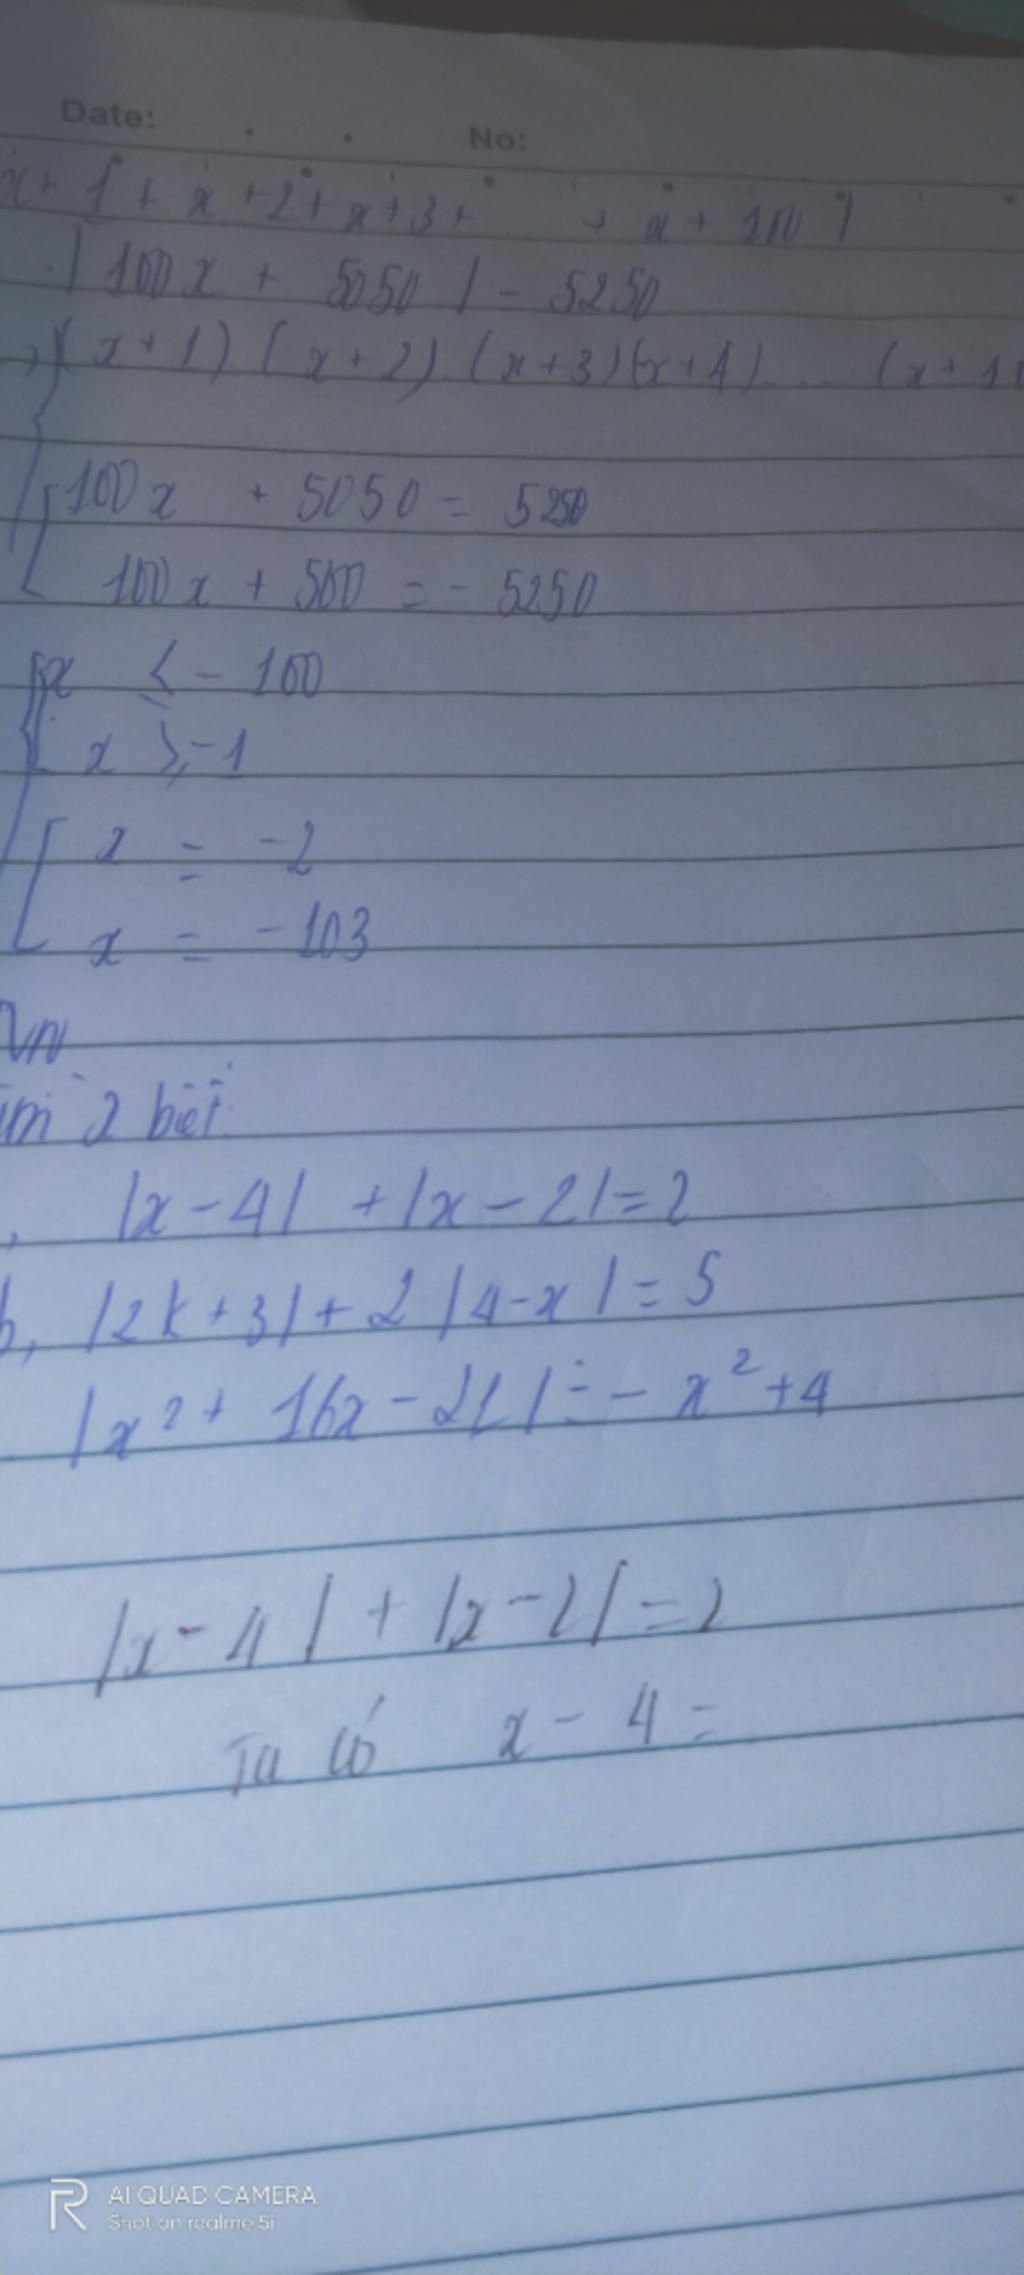 Date: No:
x + 1 + x + 2 + x + 3 + + x + 100 |
| 100x + 5050 | = 5250
(x + 1) (x + 2) (x + 3)(x + 4) .... (x + 1
100x + 5050 = 5250
100x + 500 = - 5250
x ≤ - 100
x ≥ -1
x = -2
x = -103
VN
im 2 biết
, |x - 4| + |x - 2| = 2
b, |2x + 3| + 2 |4 - x| = 5
|x² + 16x - 21| = - x² + 4
|x - 4| + |x - 2| = 2
Ta có x - 4 =
AI QUAD CAMERA
Shot on realme 5i